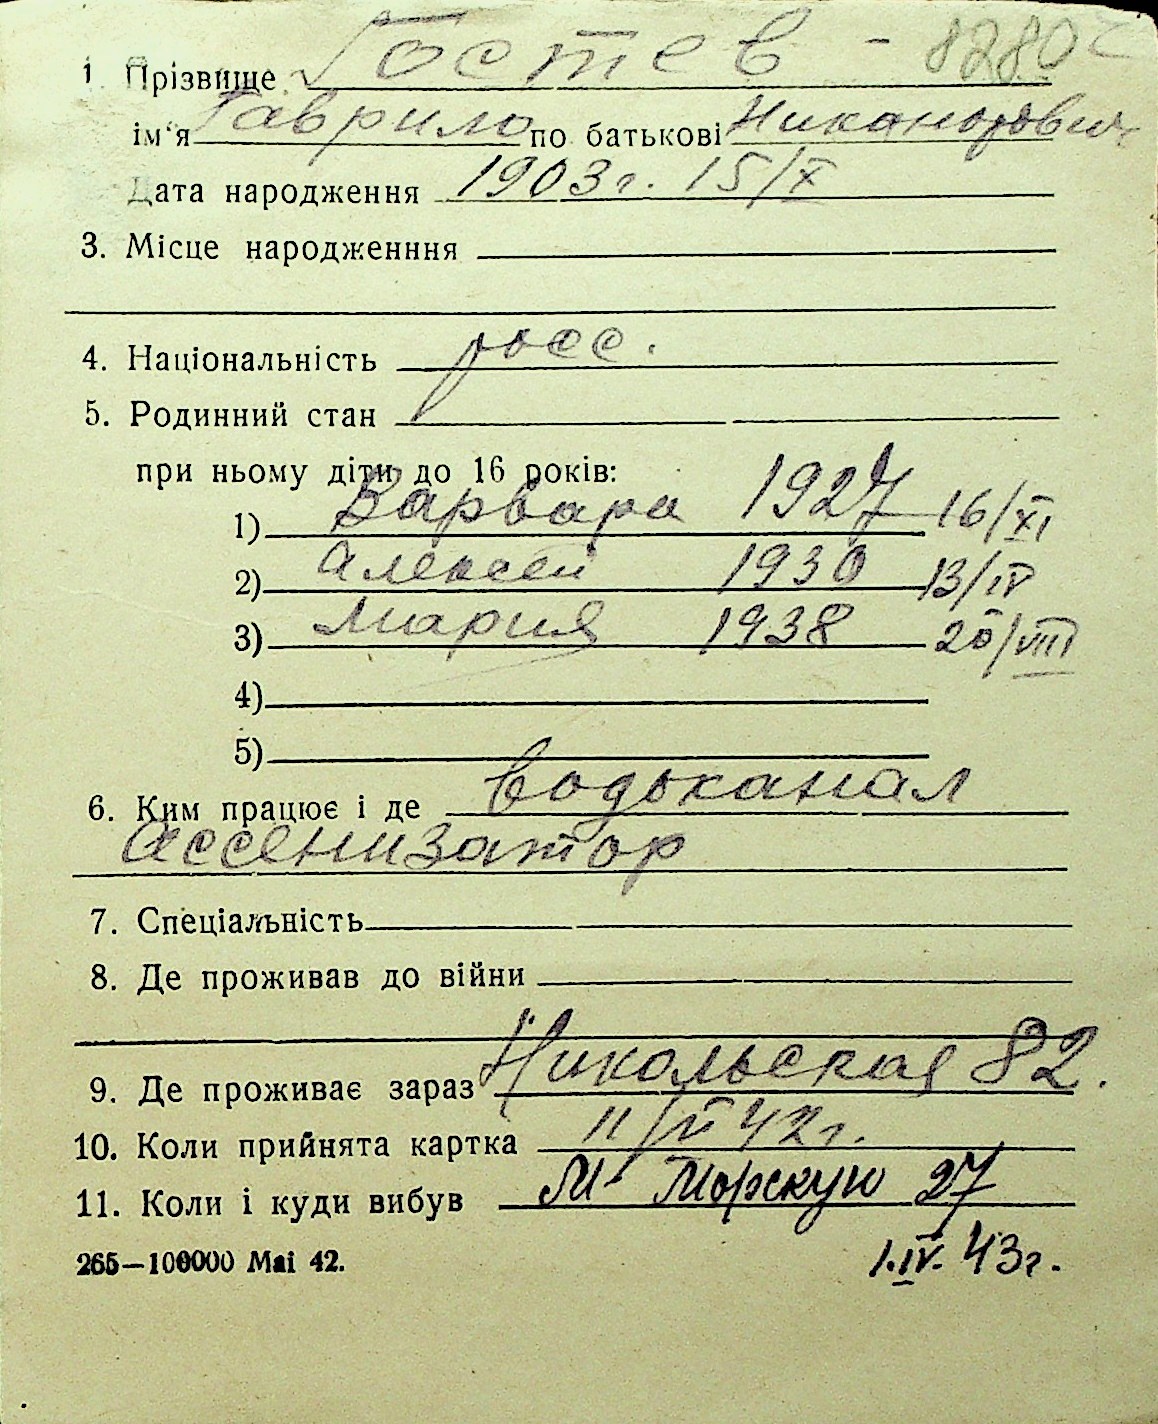 1. Прізвище Гостев - 8280
ім'я Гаврило по батькові Никанорович
Дата народження 1903 г. 15/X
3. Місце народженння
4. Національність росс.
5. Родинний стан
при ньому діти до 16 років:
1) Варвара 1927 16/XI
2) Алексей 1930 13/IV
3) Мария 1938 20/VIII
4)
5)
6. Ким працює і де водоканал
ассенизатор
7. Спеціальність
8. Де проживав до війни
9. Де проживає зараз Никольская 82.
10. Коли прийнята картка 42 г.
11. Коли і куди вибув М. Морскую 27
265—100000 Mai 42.
1.IV.43 г.